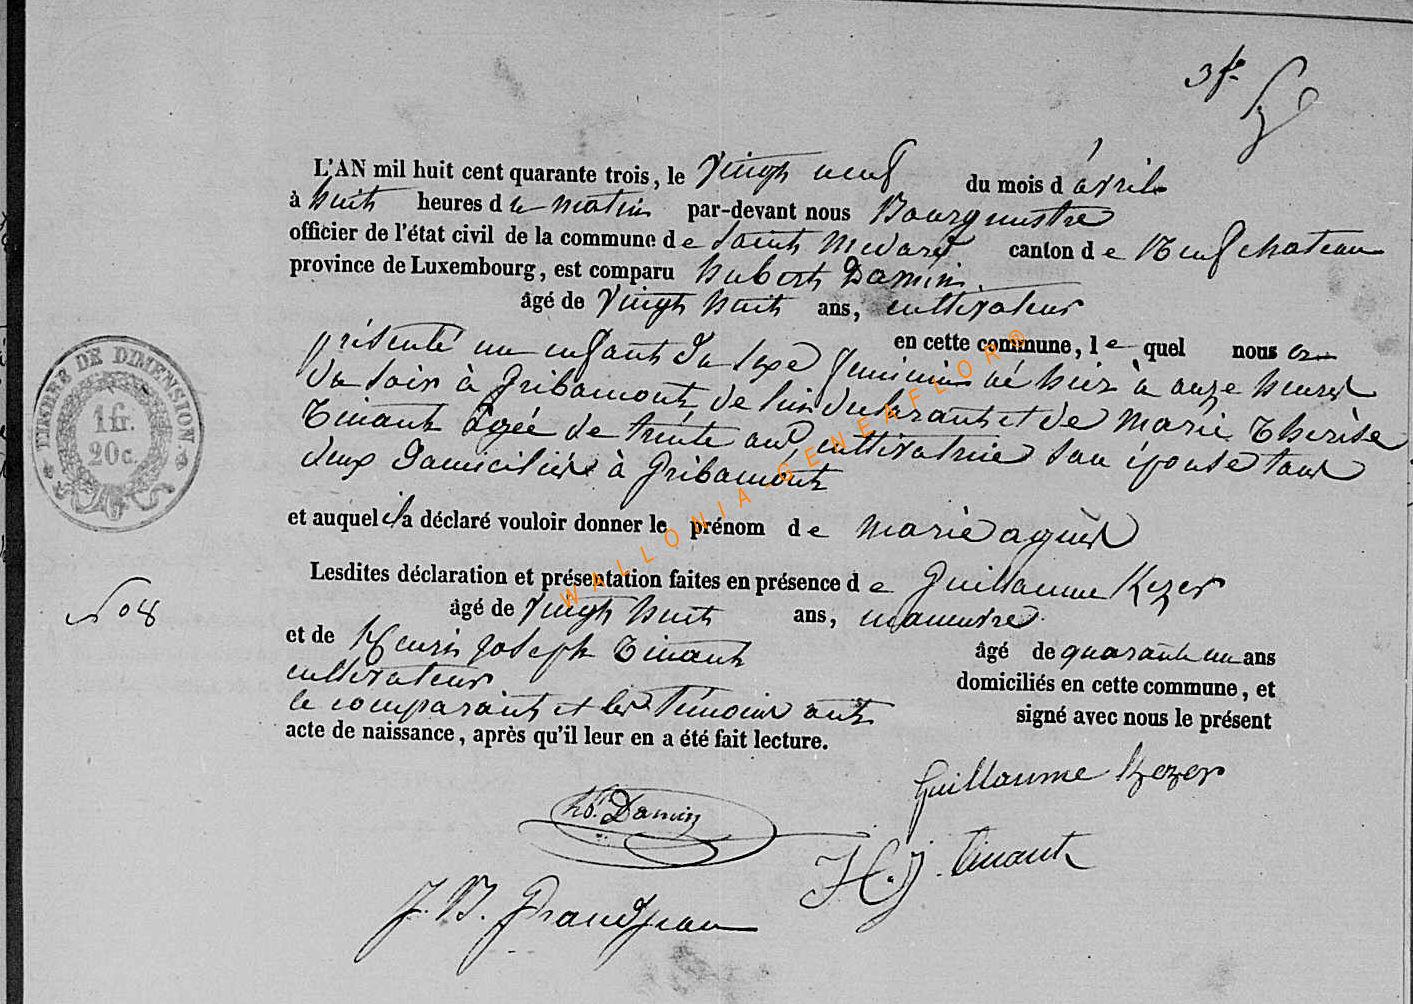 3 fe
L'AN mil huit cent quarante trois, le vingt neuf du mois d'avril
à huit heures du matin par-devant nous Bourgmestre
officier de l'état civil de la commune de Saint Médard canton de Neufchateau
province de Luxembourg, est comparu hubert Damin
âgé de vingt huit ans, cultivateur
en cette commune, le quel nous a
présenté un enfant du sexe feminin né hier à onze heures
du soir à Gribamont, de lui déclarant et de Marie Therèse
Tinant agée de trente ans, cultivatrice son épouse tous
deux domiciliés à Gribamont
et auquel il a déclaré vouloir donner le prénom de Marie agnès
Lesdites déclaration et présentation faites en présence de Guillaume Kezer
âgé de vingt huit ans, manœuvre
No 8
et de Henri joseph Tinant âgé de quarante un ans
cultivateur domiciliés en cette commune, et
le comparant et les témoins ont signé avec nous le présent
acte de naissance, après qu'il leur en a été fait lecture.
TIMBRE DE DIMENSION.
1 fr.
20 c.
Guillaume Kezer
hb. Damin
H. J. Tinant
J. B. Grandjean
WALLONIA-GENEAFLOR®